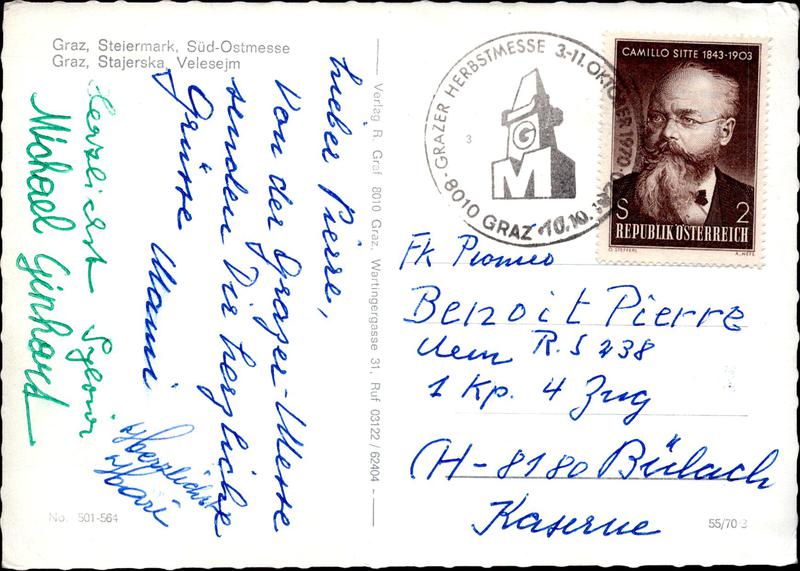 Graz, Steiermark, Süd-Ostmesse
Graz, Stajerska, Velesejm
Lieber Pierre,
Von der Grazer-Messe
senden Dir herzliche
Grüsse Mami
Herzlichst Sylvia
Michael
Herzlichst
No. 501-564
Verlag R. Graf 8010 Graz, Wartingergasse 31, Ruf 03122/62404
GRAZER HERBSTMESSE 3-11.OKTOBER 1970
8010 GRAZ
10.10.
3
G
M
CAMILLO SITTE 1843-1903
S 2
REPUBLIK ÖSTERREICH
Benoit Pierre
R.S 238
1 Kp. 4 Zug
CH-8180 Bülach
Kaserne
55/70